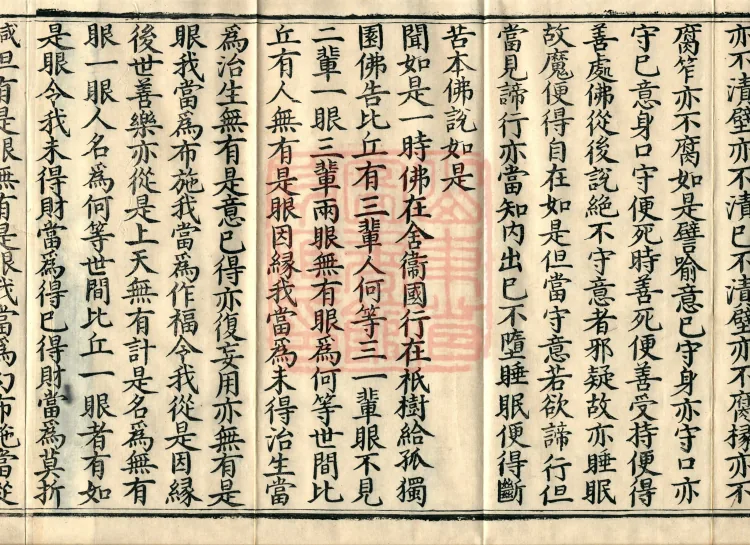 亦不漬壁亦不漬已不漬壁亦不腐椽亦不
腐笮亦不腐如是譬喻意已守身亦守口亦
守已意身口守便死時善死便善受持便得
善處佛從後說絕不守意者邪疑故亦睡眠
故魔便得自在如是但當守意若欲諦行但
當見諦行亦當知內出已不墮睡眠便得斷
苦本佛說如是
聞如是一時佛在舍衞國行在祇樹給孤獨
園佛告比丘有三輩人何等三一輩眼不見
二輩一眼三輩兩眼無有眼為何等世間比
丘有人無有是眼因緣我當為未得治生當
為治生無有是意已得亦復妄用亦無有是
眼我當為布施我當為作福令我從是因緣
後世善樂亦從是上天無有計是名為無有
眼一眼人名為何等世間比丘一眼者有如
是眼令我未得財當為得已得財當為莫折
減但有是眼無有是眼我當為幻布施當從